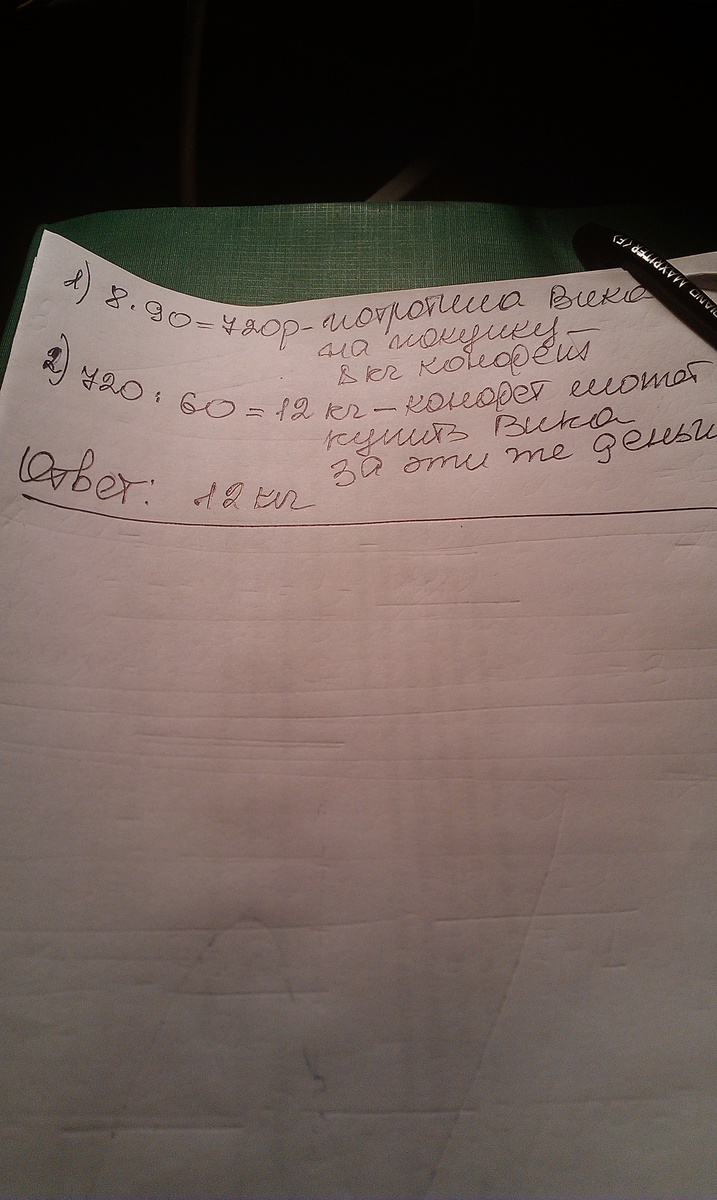 1) 8·90=720р-потратила Вика
на покупку
8 кг конфет
2) 720:60=12 кг-конфет может
купить Вика
за эти же деньги
Ответ: 12 кг
PIANO MAXRITER(F)